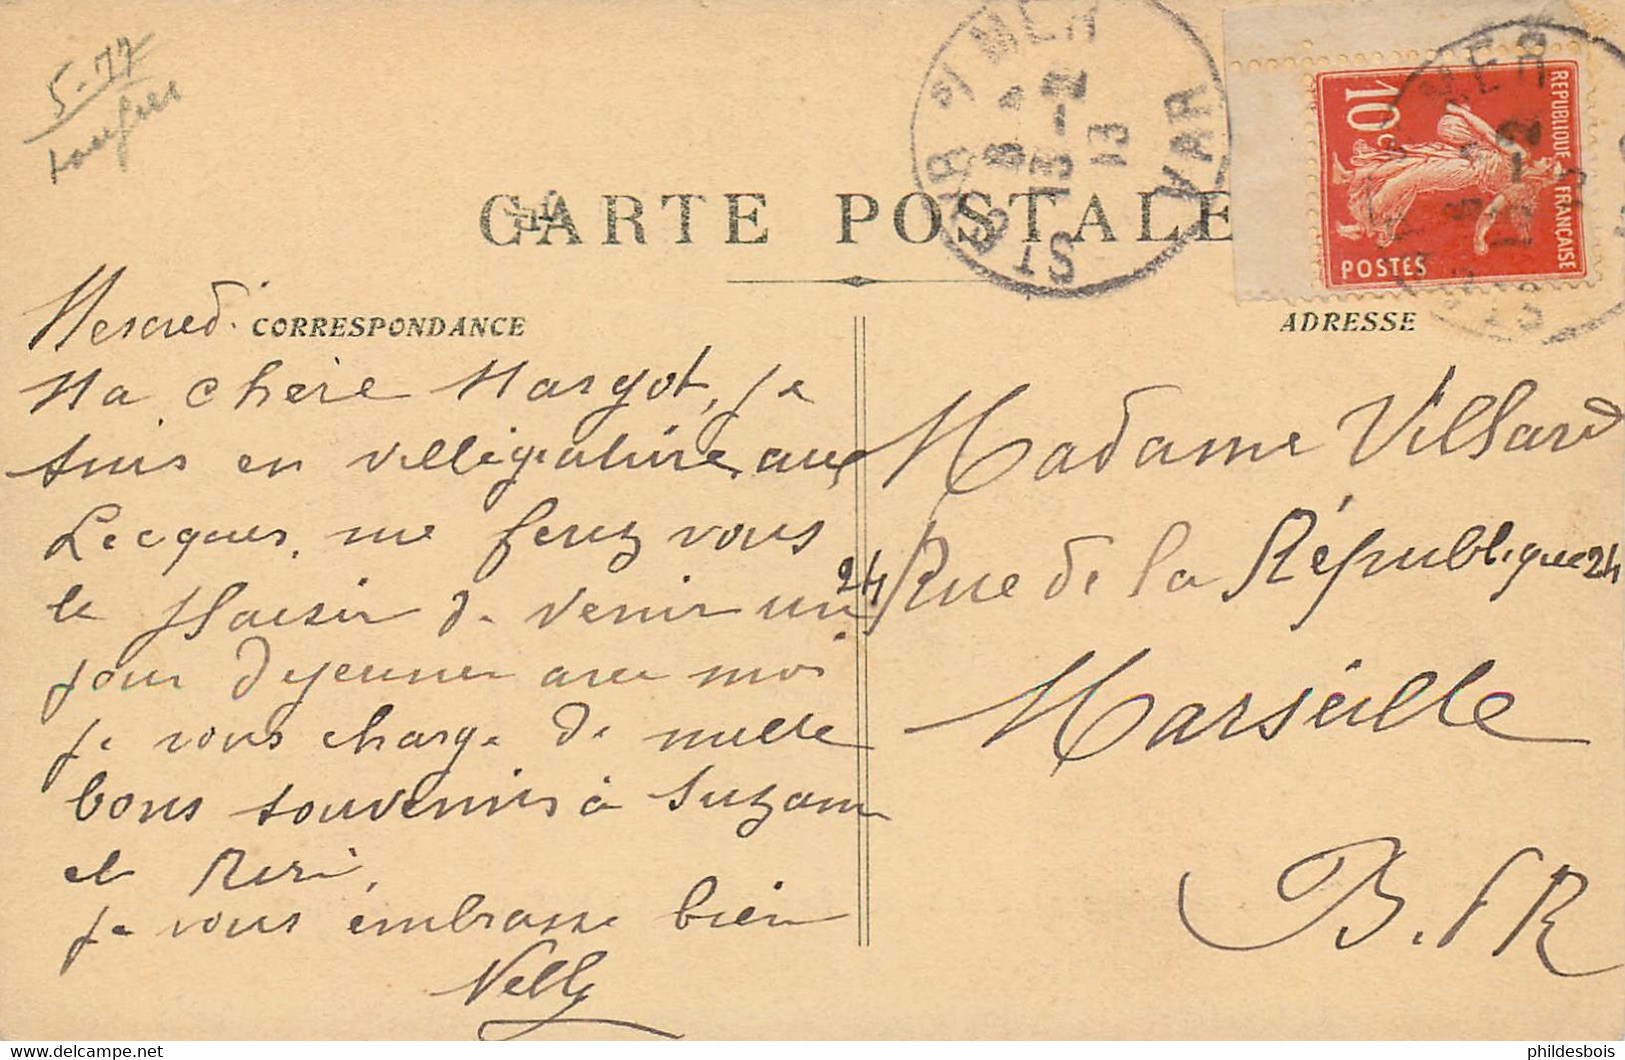 5-17
CARTE POSTALE
ST CYR S/ MER
8
13-2
13
VAR
REPUBLIQUE FRANÇAISE
10c
POSTES
CORRESPONDANCE
ADRESSE
Mercredi
Ma chère Margot, je
suis en villégiature aux
Lecques, me ferez vous
le plaisir de venir un
jour déjeuner avec moi
je vous charge de mille
bons souvenirs à Suzanne
et Riri,
je vous embrasse bien
Nelly
Madame Villard
24 Rue de la République 24
Marseille
B. d R
phildesbois